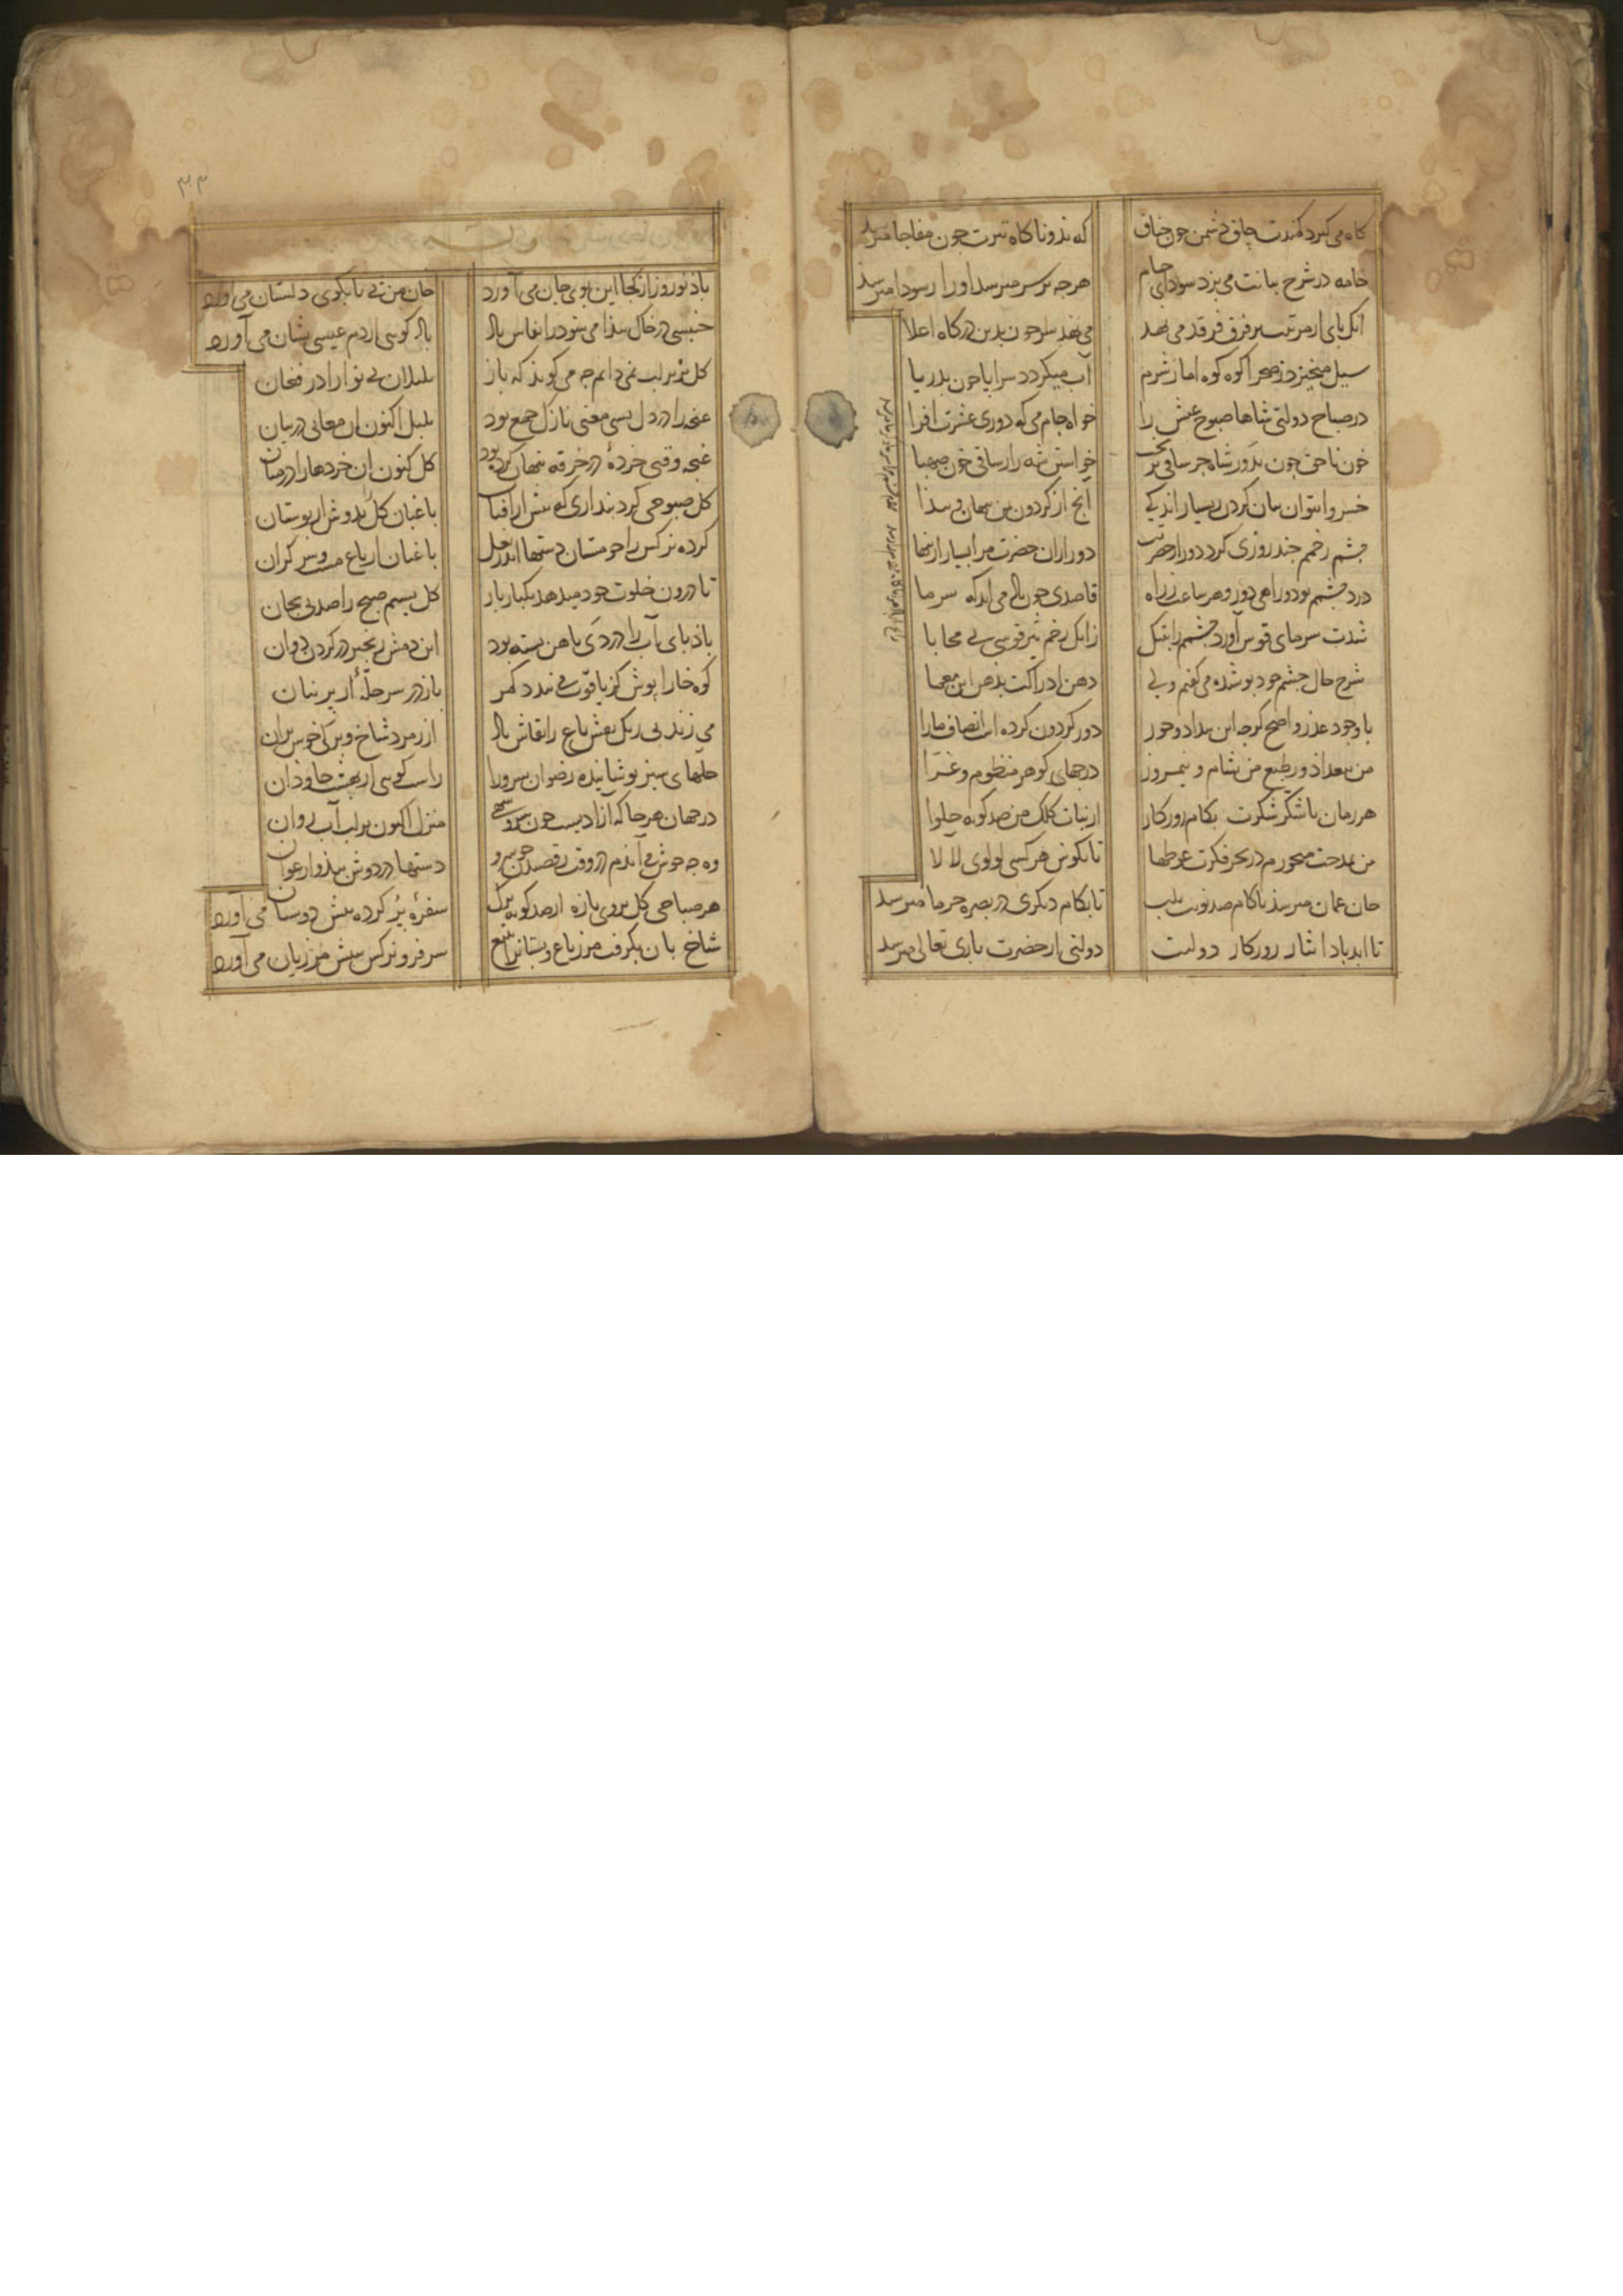 کاه می کیرد کمندت حلق دشمن چون خناق که بذو ناکاه تیرت چون مفاجا میرسد
خامه در شرح بیانت می بزد سودای خام هرچه بر سر میرسد او را ز سودا میرسد
آنک بای از مرتبت بر فرق فرقد می نهد می نهد سر چون بدین درکاه اعلا
سیل میخیزد ز صحرا کوه کوه اما ز شرم آب میکردد سرابا چون بدریا
در صباح دولتی شاها صبوح عیش را خواه جام می که دوری عشرت افزا
خون ناحق چون بدور شاه جر ساقی نریخت خواستن شه را ز ساقی خون صهبا
خسروا نتوان بیان کردن ز بسیار اندکی آنج از کردون بمن بنهان و بیذا
جشم زخمم جند روزی کرد دور از حضرتت دور از آن حضرت مرا بسیار ازینها
درد جشمم بود و راهی دور و هر ساعت ز راه قاصدی جون باد می آید که سرما
شدت سرمای قوس آورد جشمم را بتنک زانک زخم تیر قوسی بی محابا
شرح حال جشم خود بوشیده می کفتم ولی ذهن ادراکت بدهر این معما
با وجود عذر واضح کرجه این بیداد و جور دور کردون کرده است انصاف ما را
من ببغداد و ز طبع من بشام و نیمروز درجهای کوهر منظوم و غرا
هر زمان با شکر شکرت بکام روزکار از نبات کلک من صد کونه حلوا
من بمدحت میخورم در بحر فکرت غوطها تا بکوش هر کسی لولوی لالا
جان عمان میرسد ناکام صد نوبت بلب تا بکام دیکری در بصره خرما میرسد
تا ابد بادا نثار روزکار دولتت دولتی از حضرت باری تعالی میرسد
۳۳
باد نوروز از کجا این بوی جان می آورد جان من بی تا بکوی دلستان می آورد
جنبشی در خاک بیذا می شود ز انفاس باد باد کویی از دم عیسی نشان می آورد
کل بزیر لب نمی دانم جه می کوید که باز بلبلان بی نوا را در فغان
غنجه را در دل بسی معنی نازک جمع بود بلبل اکنون آن معانی در بیان
غنجه وقتی خرده در خرقه بنهان کرده بود کل کنون آن خردها را در میان
کل صبوحی کرد بنداری که بیش از آفتاب باغبان کل را بدوش از بوستان
کرده نرکس را جو مستان دستها اندر بغل باغبان از باغ مست و سر کران
تا درون خلوت خود میدهد یکبار بار کل نسیم صبح را صد بی بجان
باذ بای آب را در دی باهن بسته بود این دمش بی زنجیر در کردن دوان
کوه خارا بوش کز یاقوت می بندد کمر باز در سر حله از برنیان
می زند بی رنک نقش باغ را نقاش باد از زمرد شاخ و برکی خوش بران
حلهای سبز بوشانیده رضوان سرو را راست کویی از بهشت جاودان
در جهان هر جا که آزادیست جون سرو سهی منزل اکنون بر لب آب روان
وه جه خوش می آیدم در وقت رقصیدن جو سرو دستها در دوش بید و ارغوان
هر صباحی کل بروی تازه از صد کونه برک سفره بر کرده بیش دوستان می آورد
شاخ بان بکرفت مرز باغ و بستان را بتیغ سر فرو نرکس ببیش مرزبان می آورد